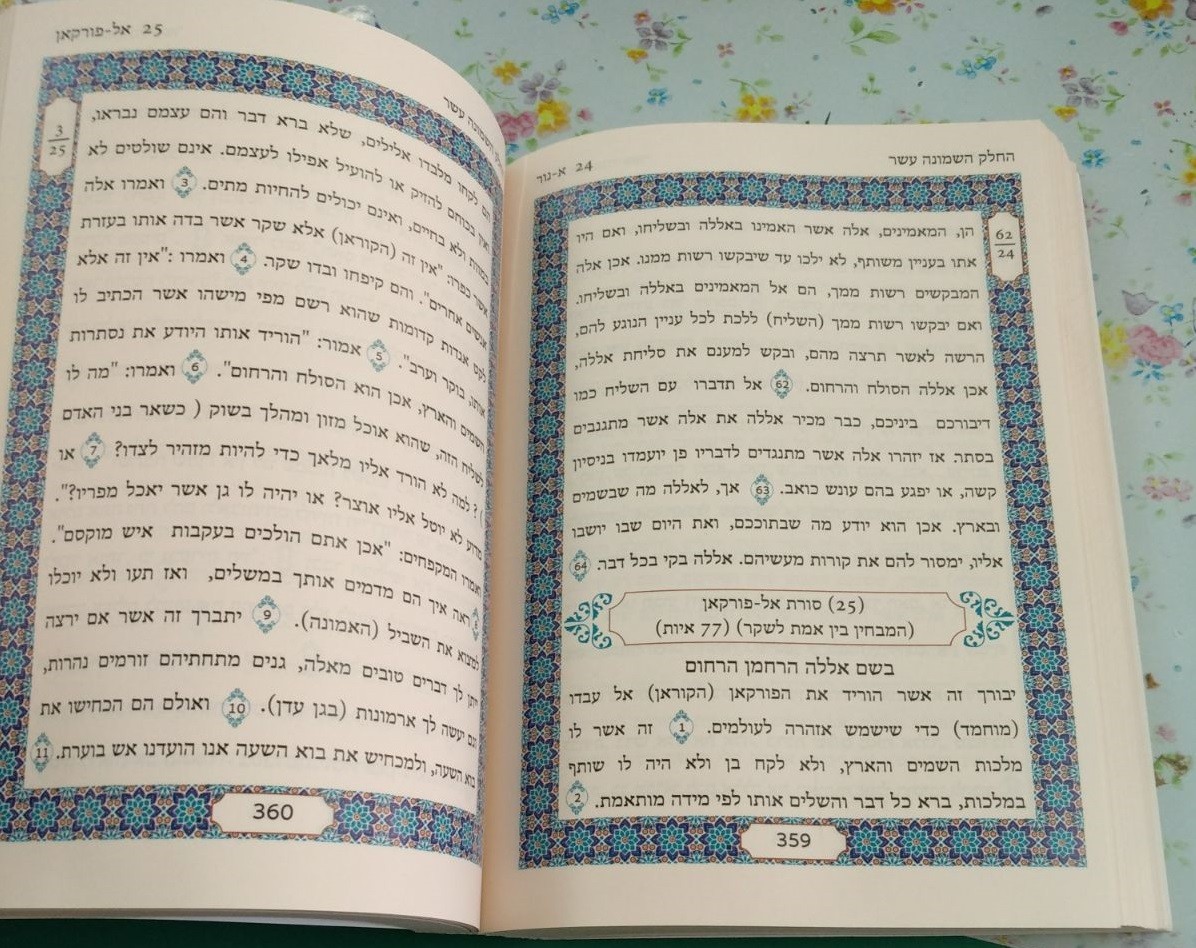 החלק השמונה עשר
24 א-נור
62
24
הן, המאמינים, אלה אשר האמינו באללה ובשליחו, ואם היו
אתו בעניין משותף, לא ילכו עד שיבקשו רשות ממנו. אכן אלה
המבקשים רשות ממך, הם אל המאמינים באללה ובשליחו.
ואם יבקשו רשות ממך (השליח) ללכת לכל עניין הנוגע להם,
הרשה לאשר תרצה מהם, ובקש למענם את סליחת אללה,
אכן אללה הסולח והרחום. 62 אל תדברו עם השליח כמו
דיבורכם ביניכם, כבר מכיר אללה את אלה אשר מתגנבים
בסתר. אז יזהרו אלה אשר מתנגדים לדבריו פן יועמדו בניסיון
קשה, או יפגע בהם עונש כואב. 63 אך, לאללה מה שבשמים
ובארץ. אכן הוא יודע מה שבתוככם, ואת היום שבו יושבו
אליו, ימסור להם את קורות מעשיהם. אללה בקי בכל דבר. 64
(25) סורת אל-פורקאן
(המבחין בין אמת לשקר) (77 איות)
בשם אללה הרחמן הרחום
יבורך זה אשר הוריד את הפורקאן (הקוראן) אל עבדו
(מוחמד) כדי שישמש אזהרה לעולמים. 1 זה אשר לו
מלכות השמים והארץ, ולא לקח בן ולא היה לו שותף
במלכות, ברא כל דבר והשלים אותו לפי מידה מותאמת. 2
359
השמונה עשר
25 אל-פורקאן
3
25
הם לקחו מלבדו אלילים, שלא ברא דבר והם עצמם נבראו,
ואין בכוחם להזיק או להועיל אפילו לעצמם. אינם שולטים לא
במוות ולא בחיים, ואינם יכולים להחיות מתים. 3 ואמרו אלה
אשר כפרו: "אין זה (הקוראן) אלא שקר אשר בדה אותו בעזרת
אנשים אחרים". והם קיפחו ובדו שקר. 4 ואמרו :"אין זה אלא
לקט אגדות קדומות שהוא רשם מפי מישהו אשר הכתיב לו
אותו, בוקר וערב". 5 אמור: "הוריד אותו היודע את נסתרות
השמים והארץ, אכן הוא הסולח והרחום". 6 ואמרו: "מה לו
לשליח הזה, שהוא אוכל מזון ומהלך בשוק ( כשאר בני האדם
) ? למה לא הורד אליו מלאך כדי להיות מזהיר לצדו? 7 או
מדוע לא יוטל אליו אוצר? או יהיה לו גן אשר יאכל מפריו?".
ואמרו המקפחים: "אכן אתם הולכים בעקבות איש מוקסם".
8 ראה איך הם מדמים אותך במשלים, ואז תעו ולא יוכלו
למצוא את השביל (האמונה). 9 יתברך זה אשר אם ירצה
ייתן לך דברים טובים מאלה, גנים מתחתיהם זורמים נהרות,
וגם יעשה לך ארמונות (בגן עדן). 10 ואולם הם הכחישו את
בוא השעה, ולמכחיש את בוא השעה אנו הועדנו אש בוערת. 11
360